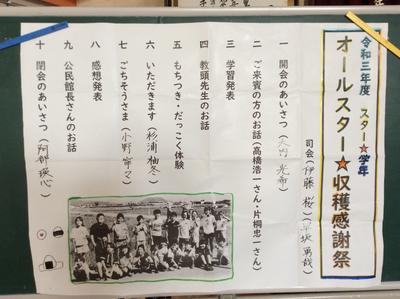 令和三年度 スター☆学年
オールスター★収穫感謝祭
司会(伊藤 桜)(早坂 勇哉)
一 開会のあいさつ(大内 光希)
二 ご来賓の方のお話(高橋浩一さん・片桐忠一さん)
三 学習発表
四 教頭先生のお話
五 もちつき・だっこく体験
六 いただきます(杉浦 柚冬)
七 ごちそうさま(小野 寧々)
八 感想発表
九 公民館長さんのお話
十 閉会のあいさつ(阿部 瑛心)